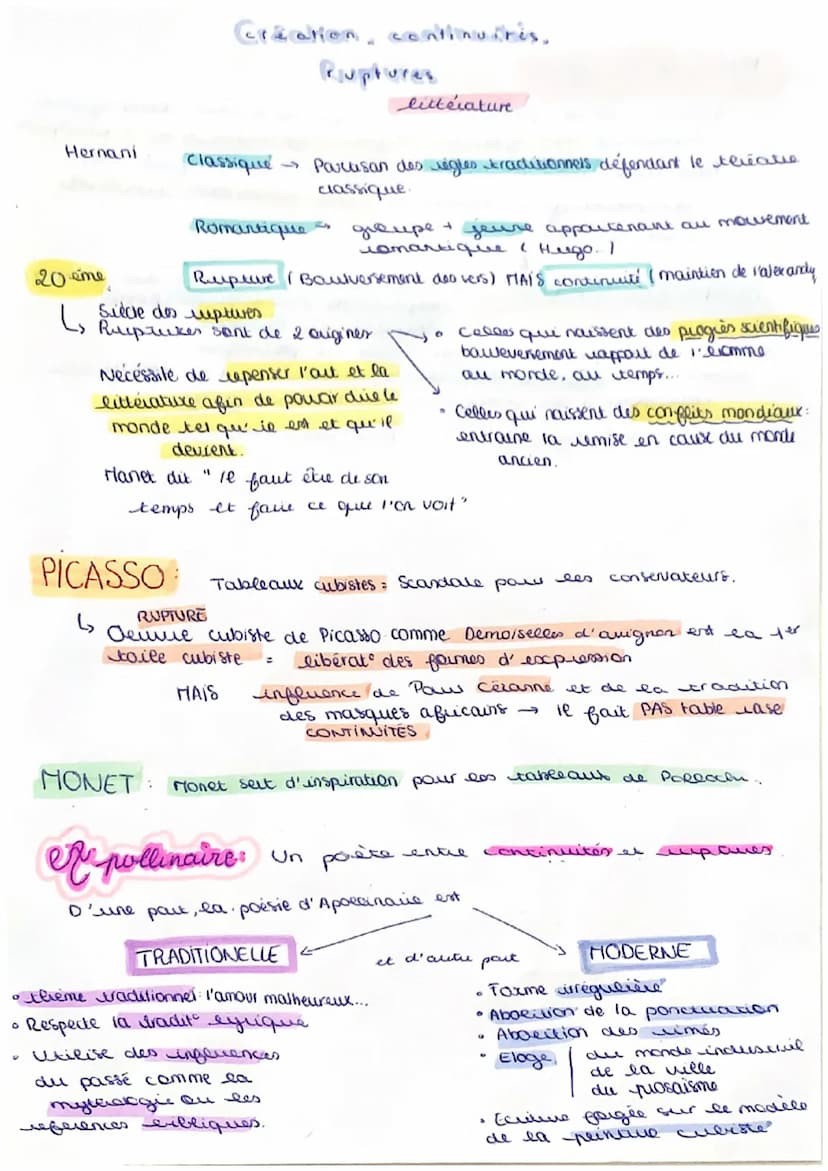 Création, continuités,
Ruptures
littérature
Hernani
Classique → Partisan des règles traditionnels défendant le théâtre
classique.
Romantique → groupe + jeune appartenant au mouvement
romantique ( Hugo. )
20 ème
Rupture ( Bouleversement des vers) MAIS continuité ( maintien de l'alexandr
↳ Siècle des ruptures
Ruptures sont de 2 origines
• Celles qui naissent des progrès scientifiques
bouleversement rapport de l'homme
au monde, au temps...
Nécéssité de repenser l'art et la
littérature afin de pouvoir dire le
monde tel qu'il est et qu'il
devient.
• Celles qui naissent des conflits mondiaux:
entraine la remise en caux du monde
ancien.
Manet dit " il faut être de son
temps et faire ce que l'on voit"
PICASSO: Tableaux cubistes : Scandale pour les conservateurs.
RUPTURE
↳ Oeuvre cubiste de Picasso comme Demoiselles d'avignon est la 1er
toile cubiste = libérat° des formes d'expression
MAIS influence de Paul Cézanne et de la tradition
des masques africains → il fait PAS table rase
CONTINUITÉS
MONET : Monet sert d'inspiration pour les tableaux de Pollock.
Apollinaire: Un poète entre continuités et ruptures
D'une part, la poésie d'Apollinaire est
TRADITIONELLE
et d'autre part
MODERNE
• thème traditionnel: l'amour malheureux...
• Respecte la tradit° lyrique
• Utilise des influences
du passé comme la
mythologie ou les
réferences bibliques.
• Forme irrégulière
• Abolition de la ponctuation
• Abolition des rimes
• Eloge du monde industriel
de la ville
du prosaïsme
• Ecriture forgée sur le modèle
de la peinture cubiste